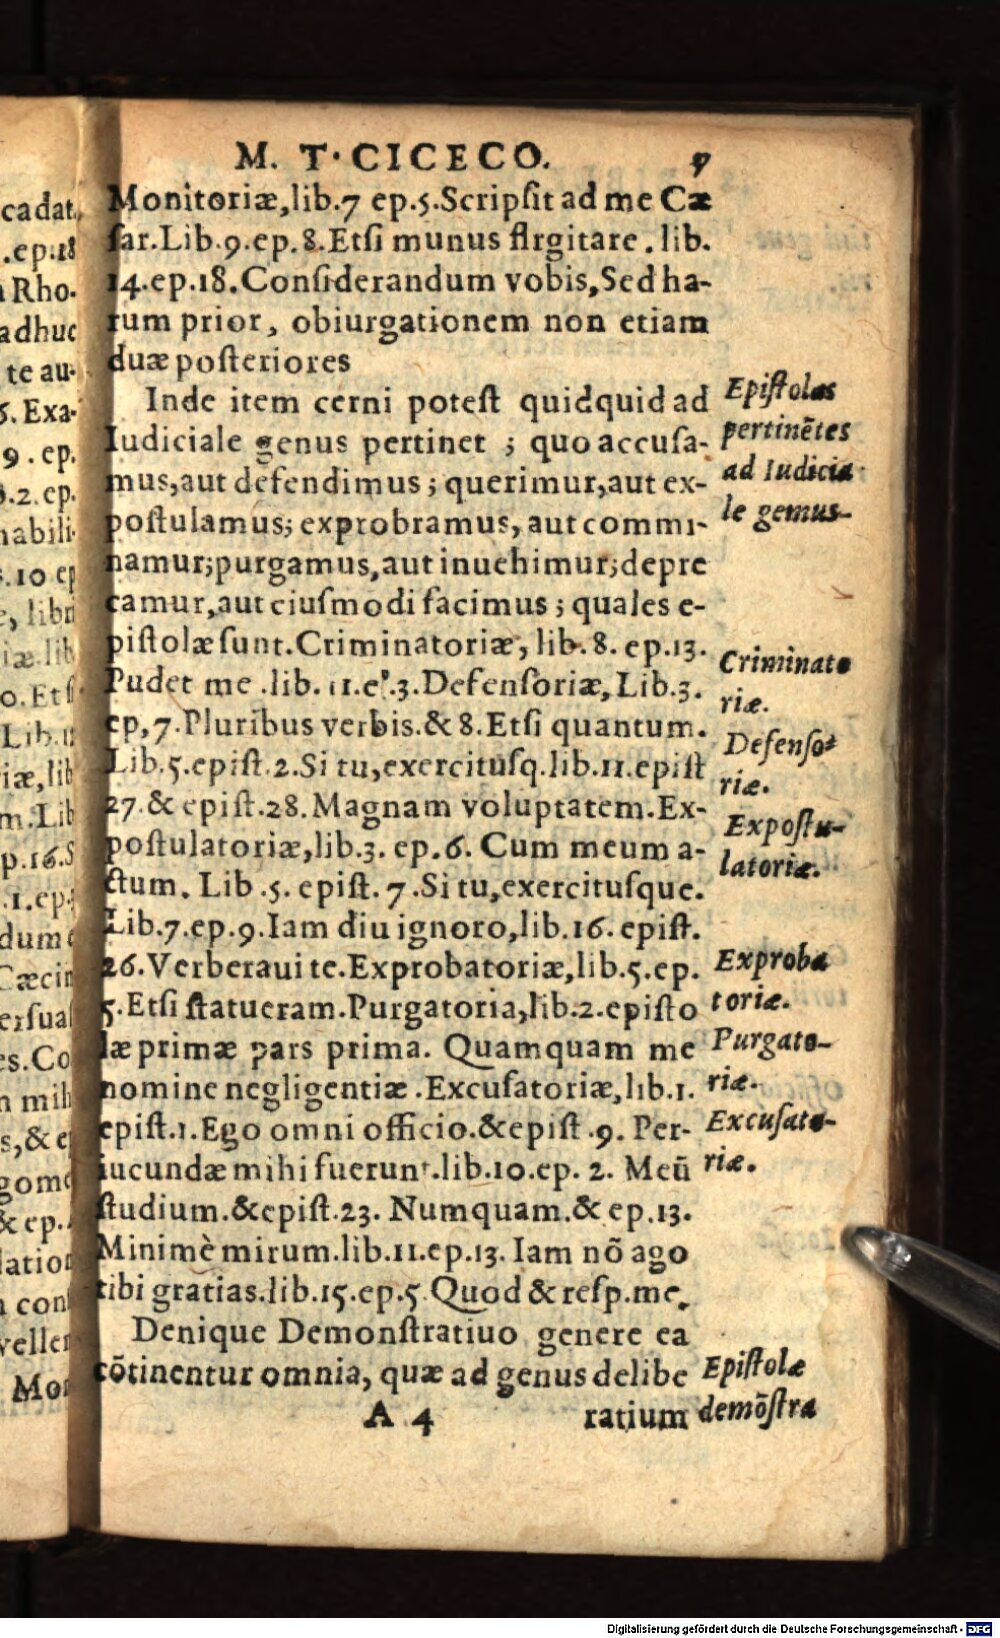 M. T. CICECO. 7
Monitoriæ, lib.7 ep.5. Scripſit ad me Cæ
ſar. Lib.9. ep. 8. Etſi munus flrgitare. lib.
14. ep.18. Conſiderandum vobis, Sed ha-
rum prior, obiurgationem non etiam
duæ poſteriores
Inde item cerni poteſt quidquid ad
Iudiciale genus pertinet ; quo accuſa-
mus, aut defendimus ; querimur, aut ex-
poſtulamus; exprobramus, aut commi-
namur; purgamus, aut inuehimur; depre
camur, aut eiuſmodi facimus ; quales e-
piſtolæ ſunt. Criminatoriæ, lib. 8. ep.13.
Pudet me .lib. 11. eᵖ.3. Defenſoriæ, Lib.3.
ep, 7. Pluribus verbis. & 8. Etſi quantum.
Lib.5. epiſt.2. Si tu, exercituſq. lib.11. epiſt
27. & epiſt.28. Magnam voluptatem. Ex-
poſtulatoriæ, lib.3. ep.6. Cum meum a-
ctum. Lib .5. epiſt. 7. Si tu, exercituſque.
Lib.7. ep.9. Iam diu ignoro, lib.16. epiſt.
26. Verberaui te. Exprobatoriæ, lib.5. ep.
5. Etſi ſtatueram. Purgatoria, lib.2. epiſto
læ primæ pars prima. Quamquam me
nomine negligentiæ . Excuſatoriæ, lib.1.
epiſt.1. Ego omni officio. & epiſt .9. Per-
iucundæ mihi fuerunt. lib.10. ep. 2. Meũ
ſtudium. & epiſt.23. Numquam. & ep.13.
Minimè mirum. lib.11. ep.13. Iam nõ ago
tibi gratias. lib.15. ep.5. Quod & reſp. me.
Denique Demonſtratiuo genere ea
cõtinentur omnia, quæ ad genus delibe
A 4 ratium
Epiſtolas
pertinẽtes
ad Iudicia
le gemus-
Criminato
riæ.
Defenſo-
riæ.
Expoſtu-
latoriæ.
Exproba
toriæ.
Purgato-
riæ.
Excuſato-
riæ.
Epiſtolæ
demõſtra
cadat.
.ep.18
Rho.
adhuc
te au-
5. Exa-
9. ep.
.2. ep.
habili-
.10 ep
, libri
iæ. lib
o. Etſi
Lib.11
riæ, lib
m. Lib
p.16. S
.1. ep.
dum
Cæcin
erſuaſ
es. Co
mih
s, & e
& ep.
latio
conſ
veller
Mo
Digitalisierung gefördert durch die Deutsche Forschungsgemeinschaft - DFG